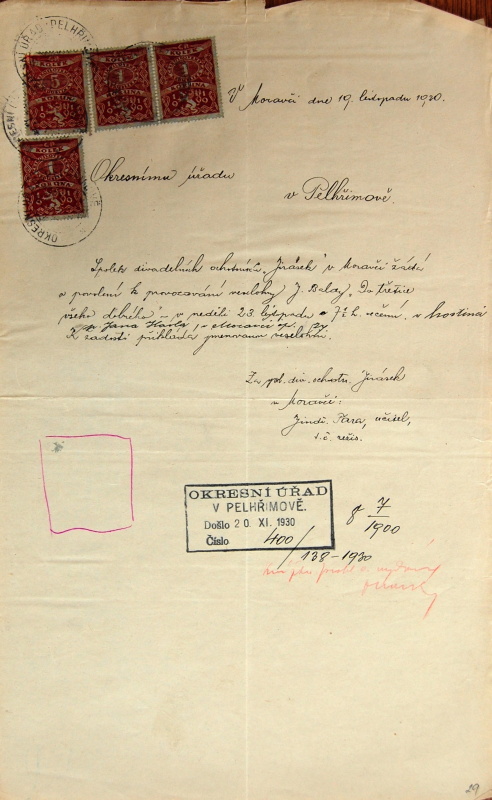 KOLEK
1
KORUNA
KOLEK
1
KORUNA
KOLEK
1
KORUNA
KOLEK
1
KORUNA
V Moravči dne 19. listopadu 1930.
Okresnímu úřadu
v Pelhřimově.
Spolek divadelních ochotníků „Jirásek" v Moravči žádá
o povolení k provozování veselohry J. Baldy „Do třetice
všeho dobrého" – v neděli 23. listopadu o 7½ h. večerní, v hostinci
p. Jana v Moravči čp. 27.
K žádosti přikládá jmenovanou veselohru.
Za sp. div. ochotn. Jirásek
v Moravči:
Jindř. Kara, učitel,
t.č. režis.
OKRESNÍ ÚŘAD
V PELHŘIMOVĚ.
Došlo 20. XI. 1930
Číslo 400/
138-1930
8 7/1900
29